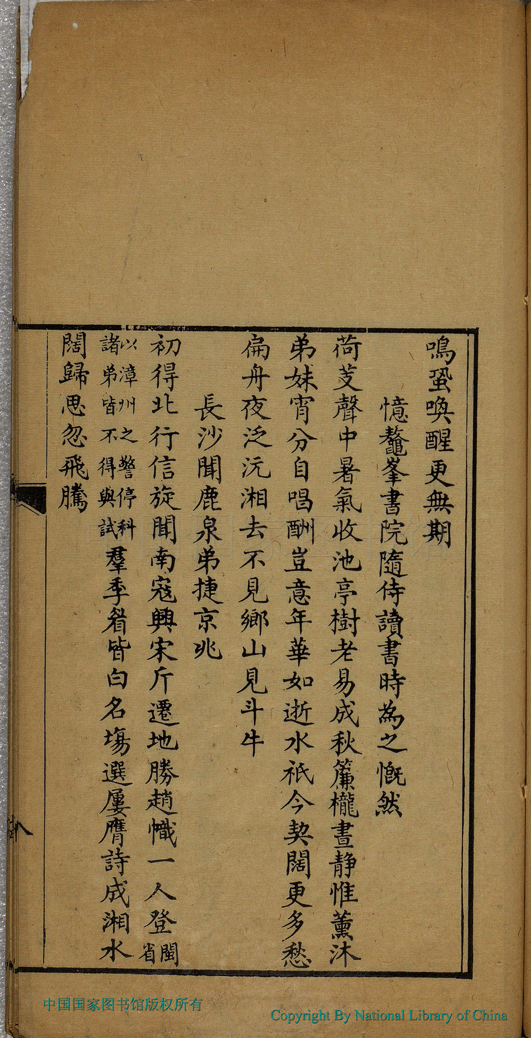 鳴蛩喚醒更無期
憶鼇峯書院隨侍讀書時為之慨然
荷芰聲中暑氣收池亭樹老易成秋簾櫳晝静惟薰沐
弟妹宵分自唱酬豈意年華如逝水祇今契闊更多愁
扁舟夜泛沅湘去不見鄉山見斗牛
長沙聞鹿泉弟捷京兆
初得北行信旋聞南寇興宋斤遷地勝趙幟一人登閩省
以漳州之警停科諸弟皆不得與試羣季眷皆白名塲選屢膺詩成湘水
闊歸思忽飛騰
八
中国国家图书馆版权所有
Copyright By National Library of China